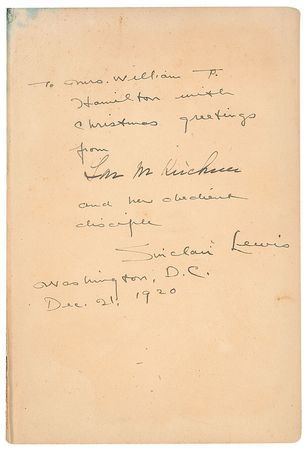 To Mrs. William P.
Hamilton with
Christmas greetings
from
M
and her obedient
disciple
Sinclair Lewis
Washington, D.C.
Dec. 21, 1920